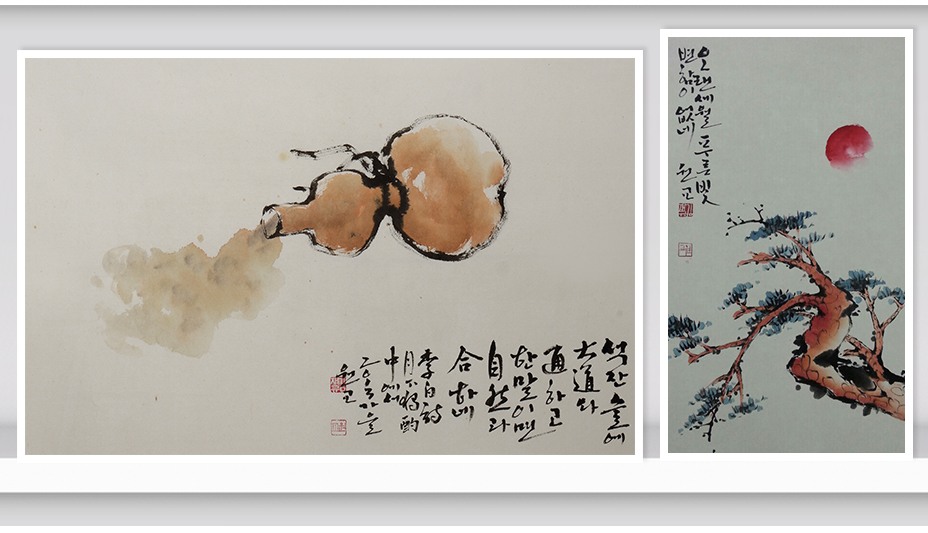 석잔 술에
大道와
通하고
한말이면
自然과
合하네
李白 詩
月下獨酌
中에서
가을
오랜 세월 푸른 빛
변함이 없네